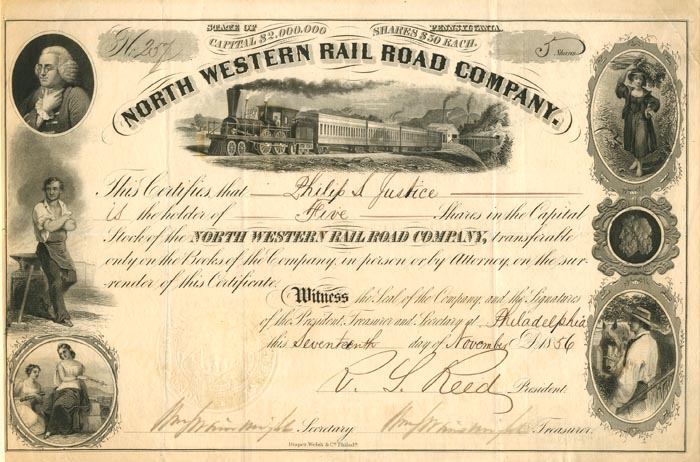 STATE OF PENNSYLVANIA
CAPITAL $2,000,000 SHARES $50 EACH.
5 Shares
NORTH WESTERN RAIL ROAD COMPANY.
This Certifies, that Philip S Justice
is the holder of Five Shares in the Capital
Stock of the NORTH WESTERN RAIL ROAD COMPANY, transferable
only on the Books of the Company, in person or by Attorney, on the sur-
render of this Certificate.
Witness the Seal of the Company, and the Signatures
of the President, Treasurer and Secretary at Philadelphia
this Seventeenth day of November 1856
President.
Secretary. Treasurer.
Draper, Welsh & Co. Philada.